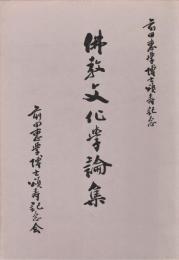 前田惠學博士頌寿記念
佛教文化學論集
前田惠學博士頌寿記念会